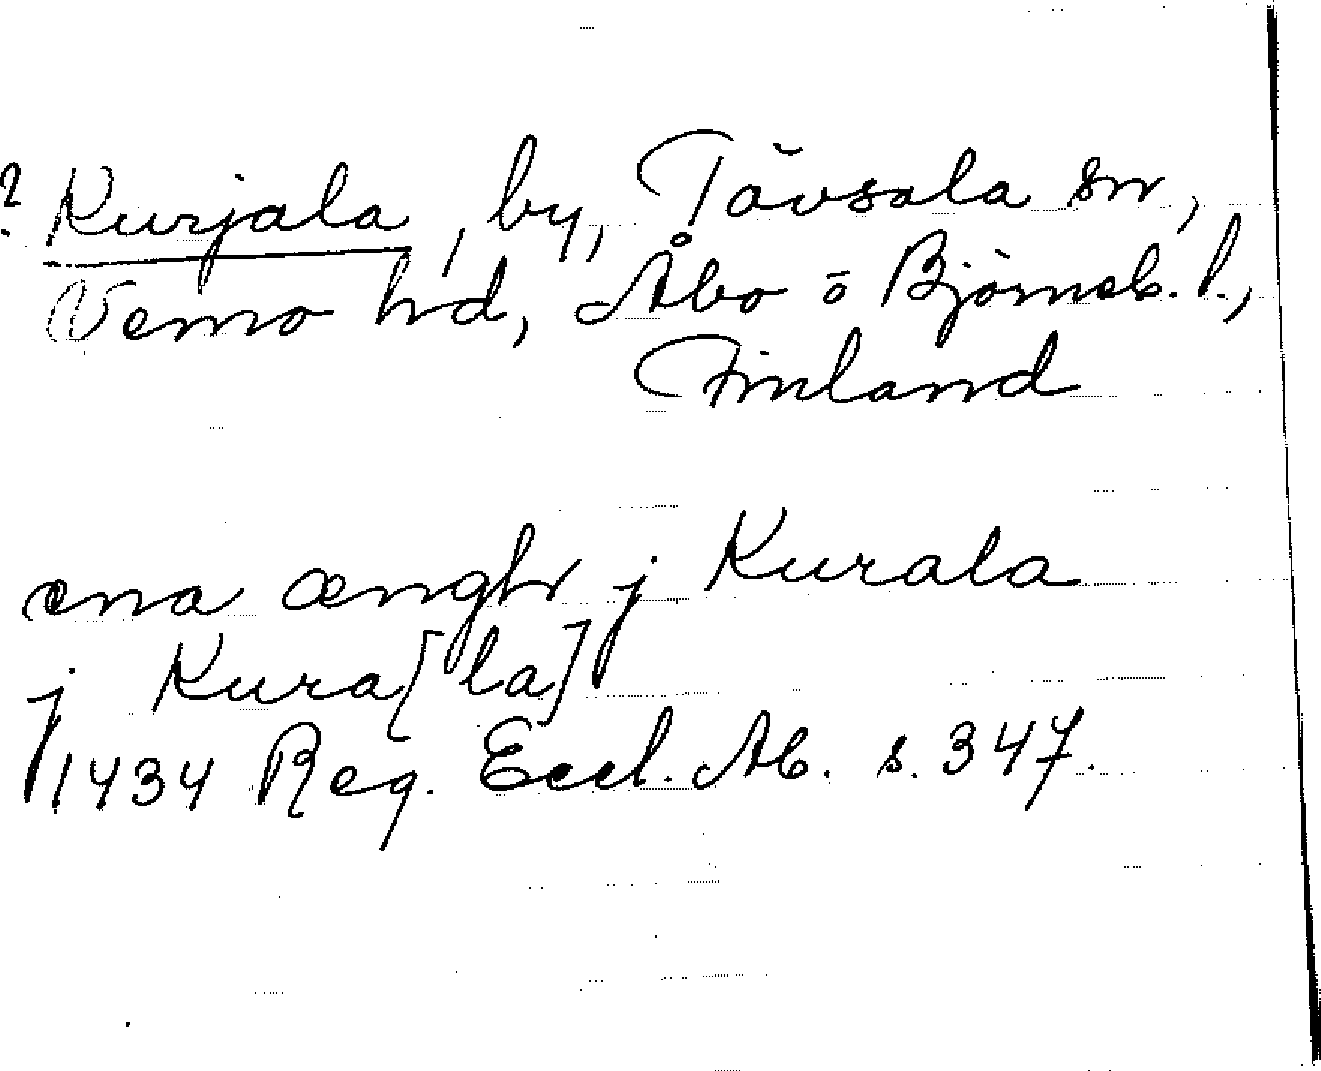 ? Kurjala, by, Tövsala sn,
Vemo hd, Åbo o Björneb. l.,
Finland
ena ængh j Kurala
j Kura[la]
1434 Reg. Eccl. Ab. s. 347.